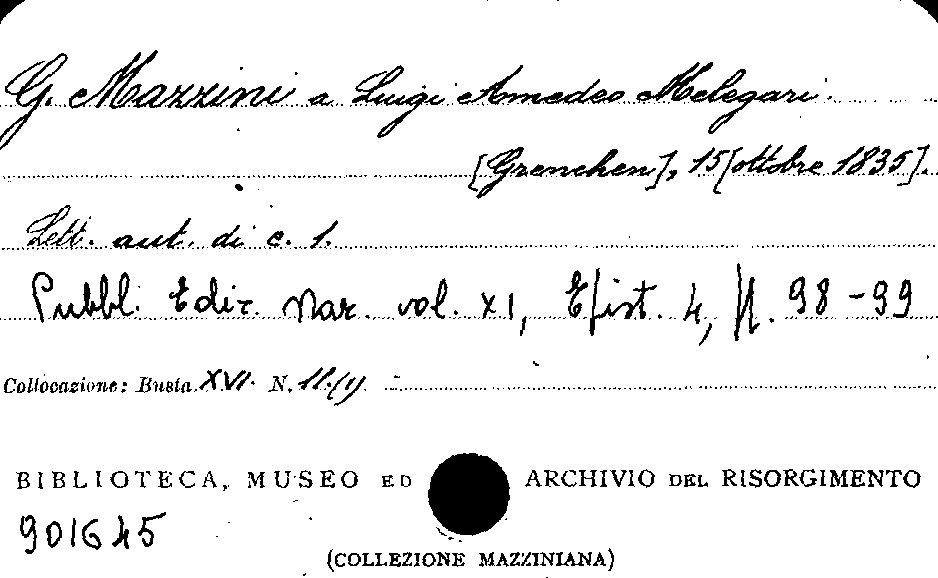 G. Mazzini a Luigi Amedeo Melegari.
[Grenchen], 15 [ottobre 1835].
Lett. aut. di c. 1.
Pubbl. Ediz. Naz. vol. XI, Epist. 4, pp. 98-99
Collocazione: Busta XVI. N.
BIBLIOTECA, MUSEO ED ARCHIVIO DEL RISORGIMENTO
901645
(COLLEZIONE MAZZINIANA)